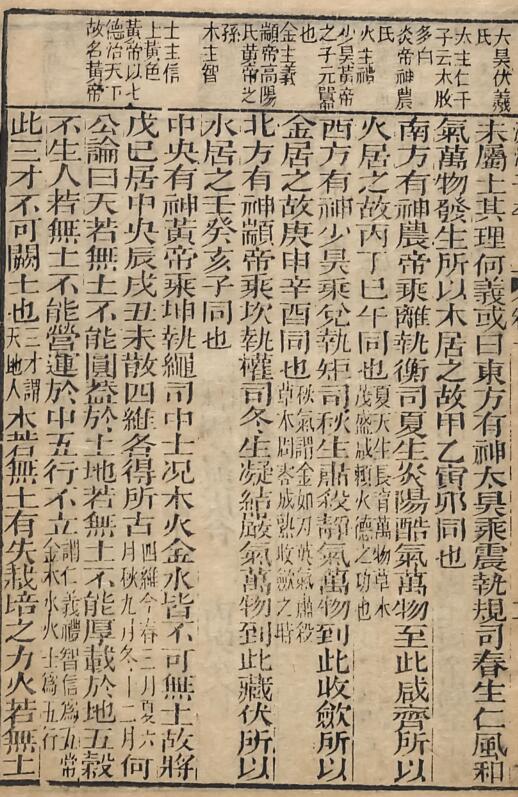 大昊伏羲
氏
大主仁干
子云木敗
多白
炎帝神農
氏
火主禮
少昊黄帝
之子元囂
也
金主義
顓帝高陽
氏黄帝之
孫
木主智
土主信
上黄色
黄帝以七
德治天下
故名黄帝
未屬土其理何義或曰東方有神太昊乘震執規司春生仁風和
氣萬物發生所以木居之故甲乙寅卯同也
南方有神農帝乘離執衡司夏生炎陽酷氣萬物至此咸齊所以
火居之故丙丁巳午同也夏大生長育萬物草木茂盛咸賴火德之功也
西方有神少昊乘兊執矩司秋生肅殺靜氣萬物到此收歛所以
金居之故庚申辛酉同也秋氣謂金如刃其氣肅殺草木閉落成熟收歛之時
北方有神顓帝乘坎執權司冬生凝結嚴氣萬物到此藏伏所以
水居之壬癸亥子同也
中央有神黄帝乘坤執繩司中土况木火金水皆不可無土故將
戊巳居中央辰戌丑未散四維各得所占四維今春三月夏六月秋九月冬十二月何
公論曰天若無土不能圓葢於上地若無土不能厚載於地五穀
不生人若無土不能營運於中五行不立謂仁義禮智信爲五常金木水火土爲五行
此三才不可闕士也三才謂天地人木若無土有失栽培之力火若無土